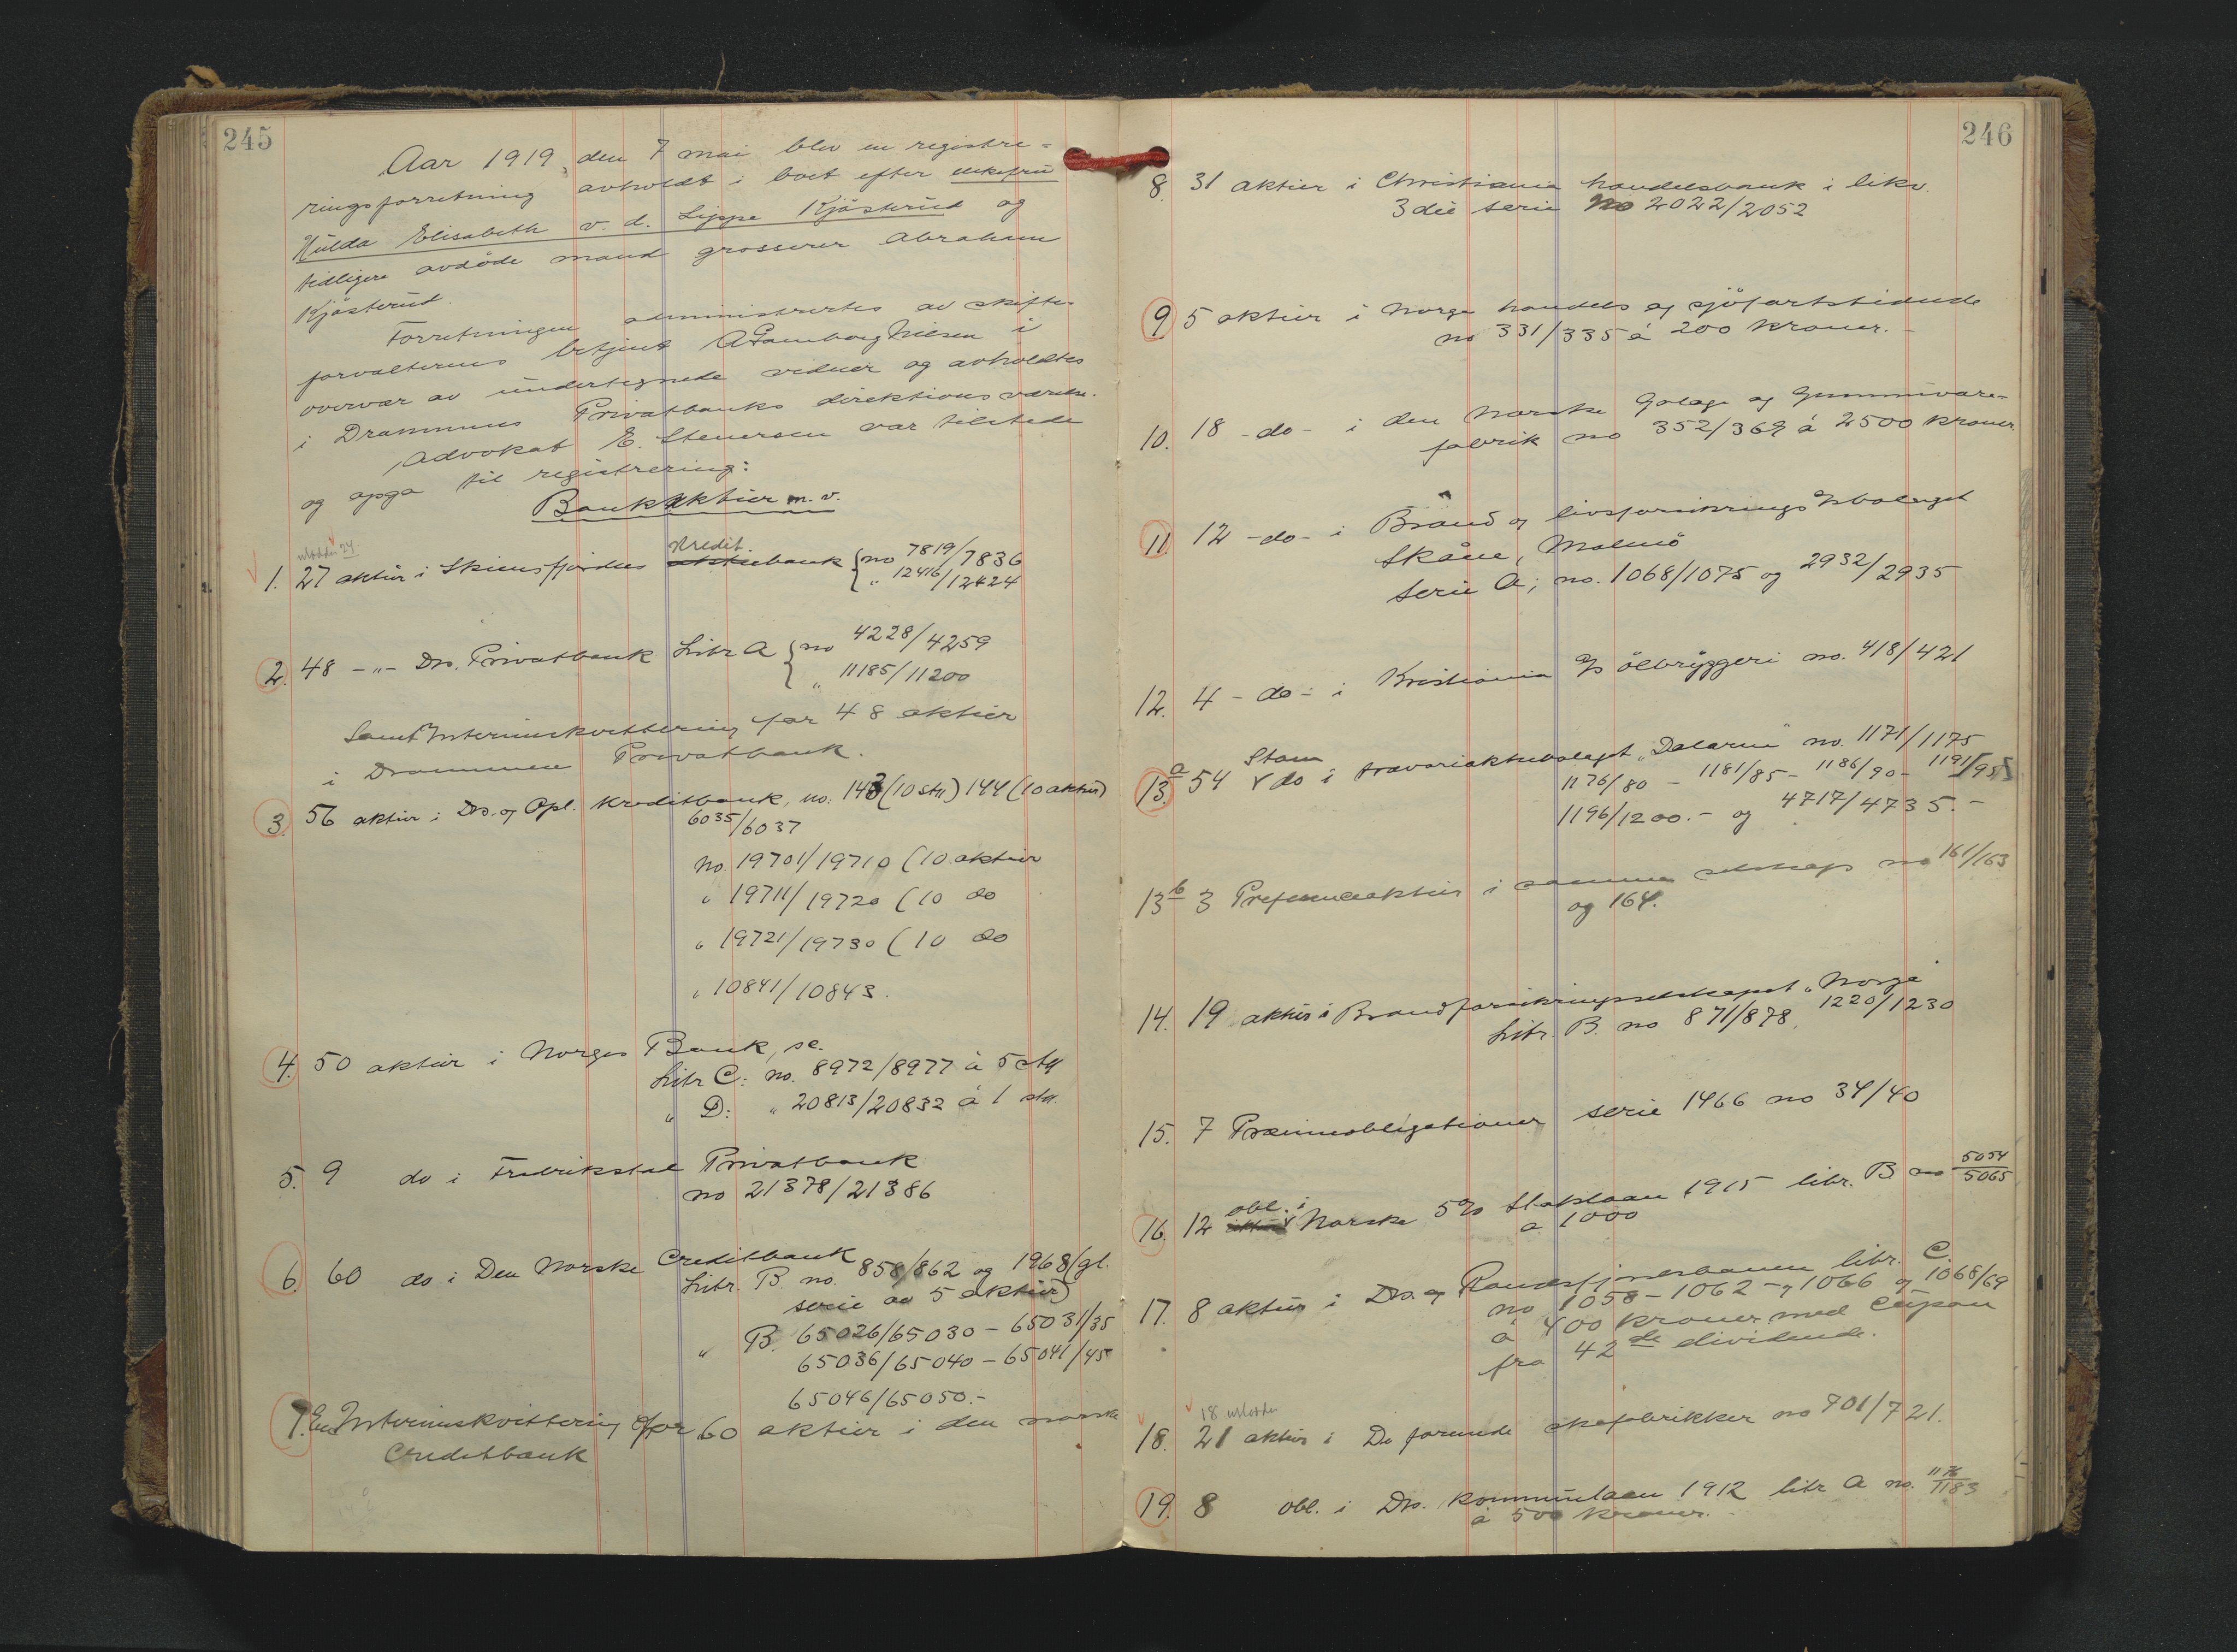 245
Aar 1919, den 7 mai blev en registre-
ringsforretning avholdt i boet efter enkefru
Hulda Elisabeth v. d. Lippe Kjøsterud og
tidligere avdøde mand grosserer Abraham
Kjøsterud.
Forretningen administrertes av skifte-
forvalterens betjent A Ramborg Nilsen i
overvær av undertegnede vidner og avholdtes
i Drammens Privatbanks direktionsværelse.
Advokat E. Stenersen var tilstede
og opga til registrering:
Bankaktier m. v.
utlodde 24.
Kredit
1. 27 aktier i Skiensfjordens aktiebank { no 7819/7836
" 12416/12424
2. 48 -"- Drs. Privatbank Litr A { no 4228/4259
" 11185/11200
Samt Interimskvittering for 48 aktier
i Drammens Privatbank.
3. 56 aktier i Drs. og Opl. Kreditbank, no. 143 (10 stk) 144 (10 aktier)
6035/6037
No. 19701/19710 (10 aktier
" 19711/19720 (10 do
" 19721/19730 (10 do
" 10841/10843.
4. 50 aktier i Norges Bank, se.
Litr C: no. 8972/8977 à 5 stk
" D: " 20813/20832 à 1 stk.
5. 9 do i Fredrikstad Privatbank
no 21378/21386
6. 60 do i Den Norske Creditbank
Litr. B no. 858/862 og 1968 (gl.
serie av 5 aktier)
" B. 65026/65030 - 65031/35
65036/65040 - 65041/45
65046/65050.-
7. En Interimskvittering for 60 aktier i den norske
Creditbank
246
8. 31 aktier i Christiania handelsbank i likv.
3die serie No 2022/2052
9 5 aktier i Norges handels og sjøfartstidende
no 331/335 à 200 kroner.-
10. 18 -do- i den Norske Galoge og Gummivare-
fabrik no 352/369 á 2500 kroner.
11. 12 -do- i Brand og livsforsikrings A/sbolaget
Skåne, Malmö
Serie A; no. 1068/1075 og 2932/2935
12. 4 -do- i Kristiania A/s ölbryggeri no. 418/421
Stam
13 a 54 do i travariaktiebolaget "Dalarne" no. 1171/1175
1176/80 - 1181/85 - 1186/90 - 1191/95
1196/1200.- og 4717/4735.-
13 b 3 Preferenceaktier i samme selskap no 161/163
og 164.
14. 19 aktier i Brandforsikringsselskapet "Norge"
Litr. B. no 871/878, 1220/1230
15. 7 Præmieobligationer serie 1466 no 34/40
obl. i
16. 12 Norske 5% Statslaan 1915 litr. B no 5054/5065
a 1000
17. 8 aktier i Drs. og Randsfjordsbanen litr. C.
no 1058 - 1062 - og 1066 og 1068/69
à 400 kroner med Cupon
fra 42de dividende.
18 utlodde
18. 21 aktier i De forenede skofabrikker no 701/721.
19. 8 obl. i Drs. kommunelaan 1912 litr A no. 1176/1183
à 500 kroner.